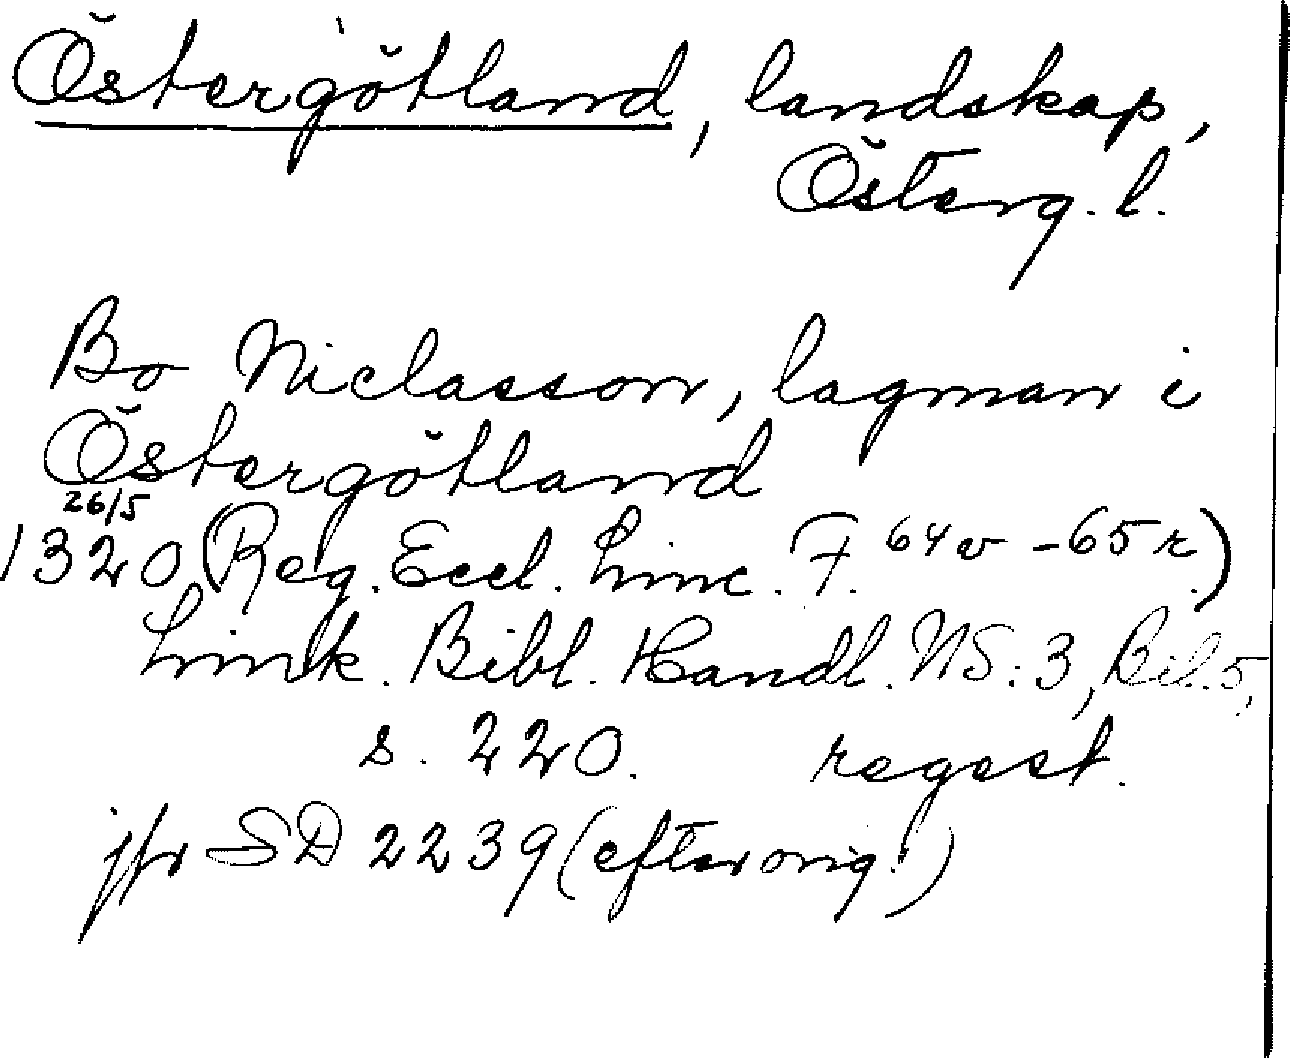 Östergötland, landskap,
Österg. l.
Bo Niclasson, lagman i
Östergötland
26/5
1320 (Reg. Eccl. Linc. F. 64v - 65r.)
Link. Bibl. Handl. NS: 3, Bil. 5,
s. 220. regest.
jfr SD 2239 (efter orig.!)